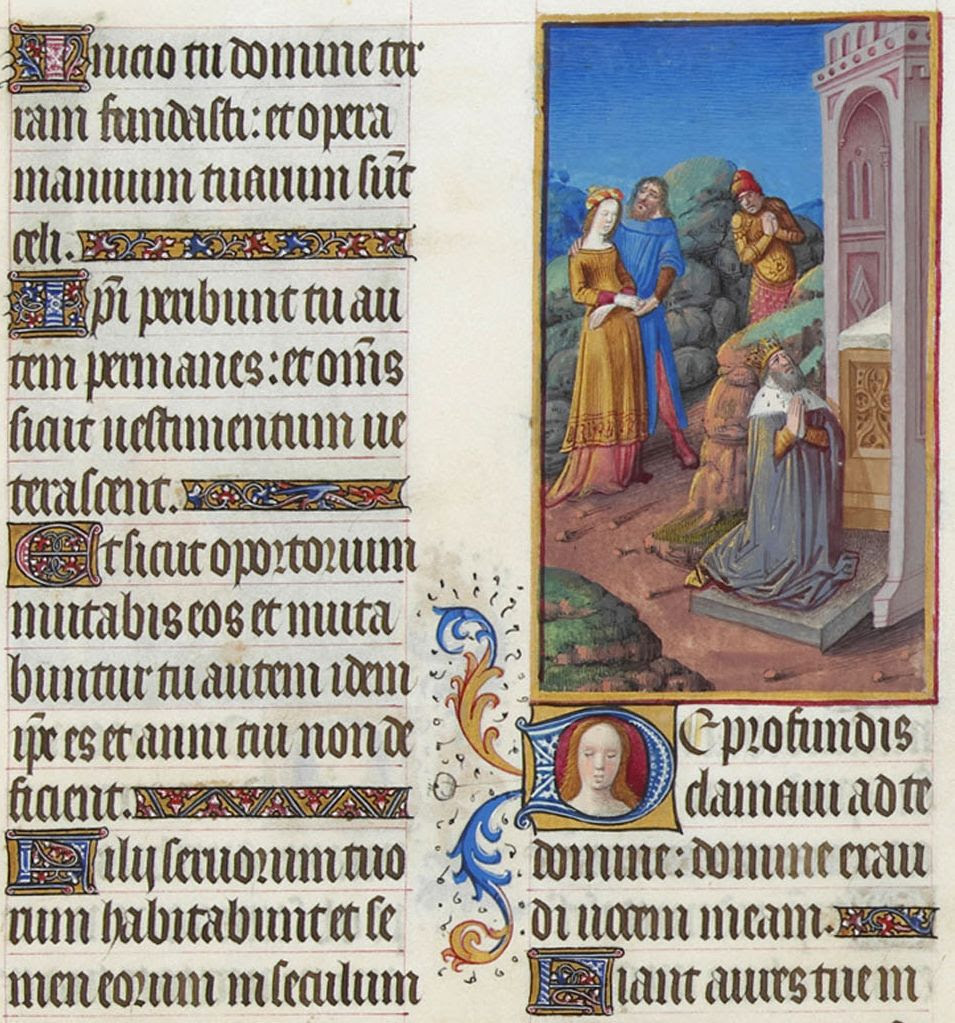 Inicio tu domine ter
ram fundasti: et opera
manuum tuarum sūt
celi.
Ipi peribunt tu au
tem permanes: et oms
sicut uestimentum ue
terascent.
Et sicut oportorium
mutabis eos et muta
buntur tu autem idem
ipe es et anni tui non de
ficient.
Filij seruorum tuo
rum habitabunt et se
men eorum in seculum
De profundis
clamaui ad te
domine: domine exau
di uocem meam.
Fiant aures tue in